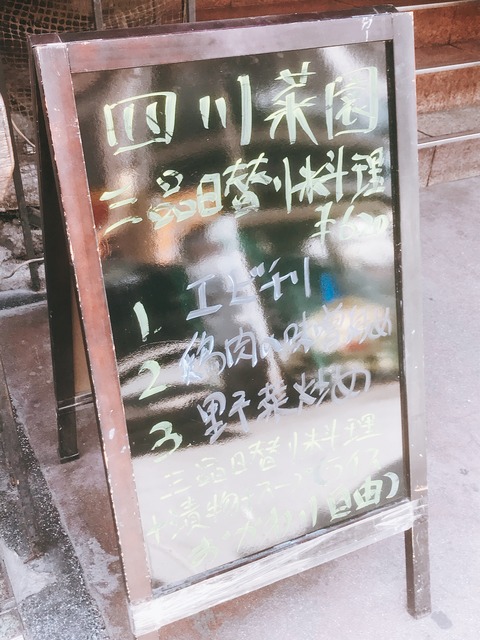 四川菜園
三品日替り料理
¥620
1. エビチリ
2 鶏肉の味噌炒め
3 野菜炒め
三品日替り料理
+漬物・スープ・ライス
おかわり自由)